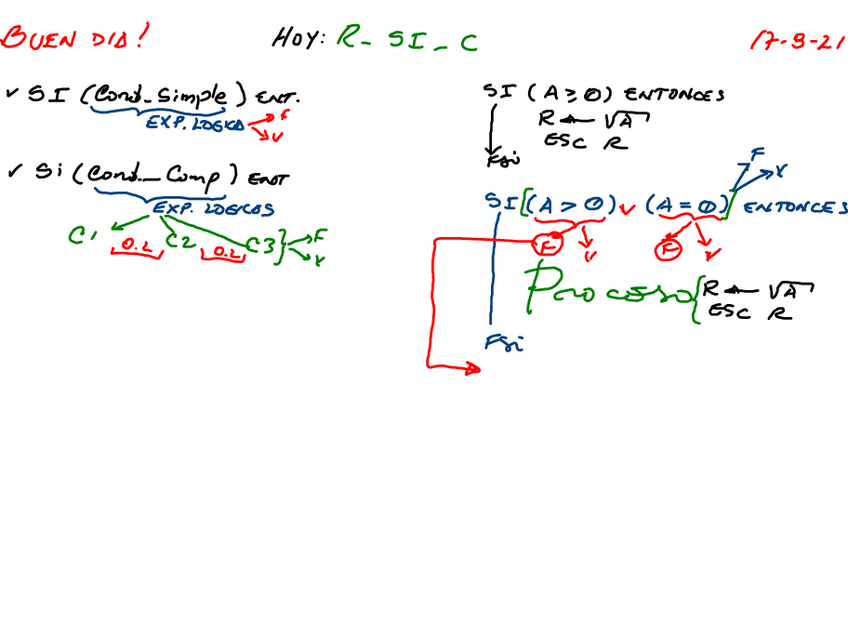 BUEN DIA! HOY: R_ SI_ C 17-9-21
✓ SI (Cond_Simple) ENT.
EXP. LOGICA F
V
✓ Si (Cond_Comp) ENT
EXP. LOGICAS
C1 O.L C2 O.L C3 F
V
SI (A ≥ 0) ENTONCES
R ← √A
ESC R
Fsi
F
V
SI [(A > 0) ∨ (A = 0)] ENTONCES
F V F V
Proceso { R ← √A
ESC R
Fsi